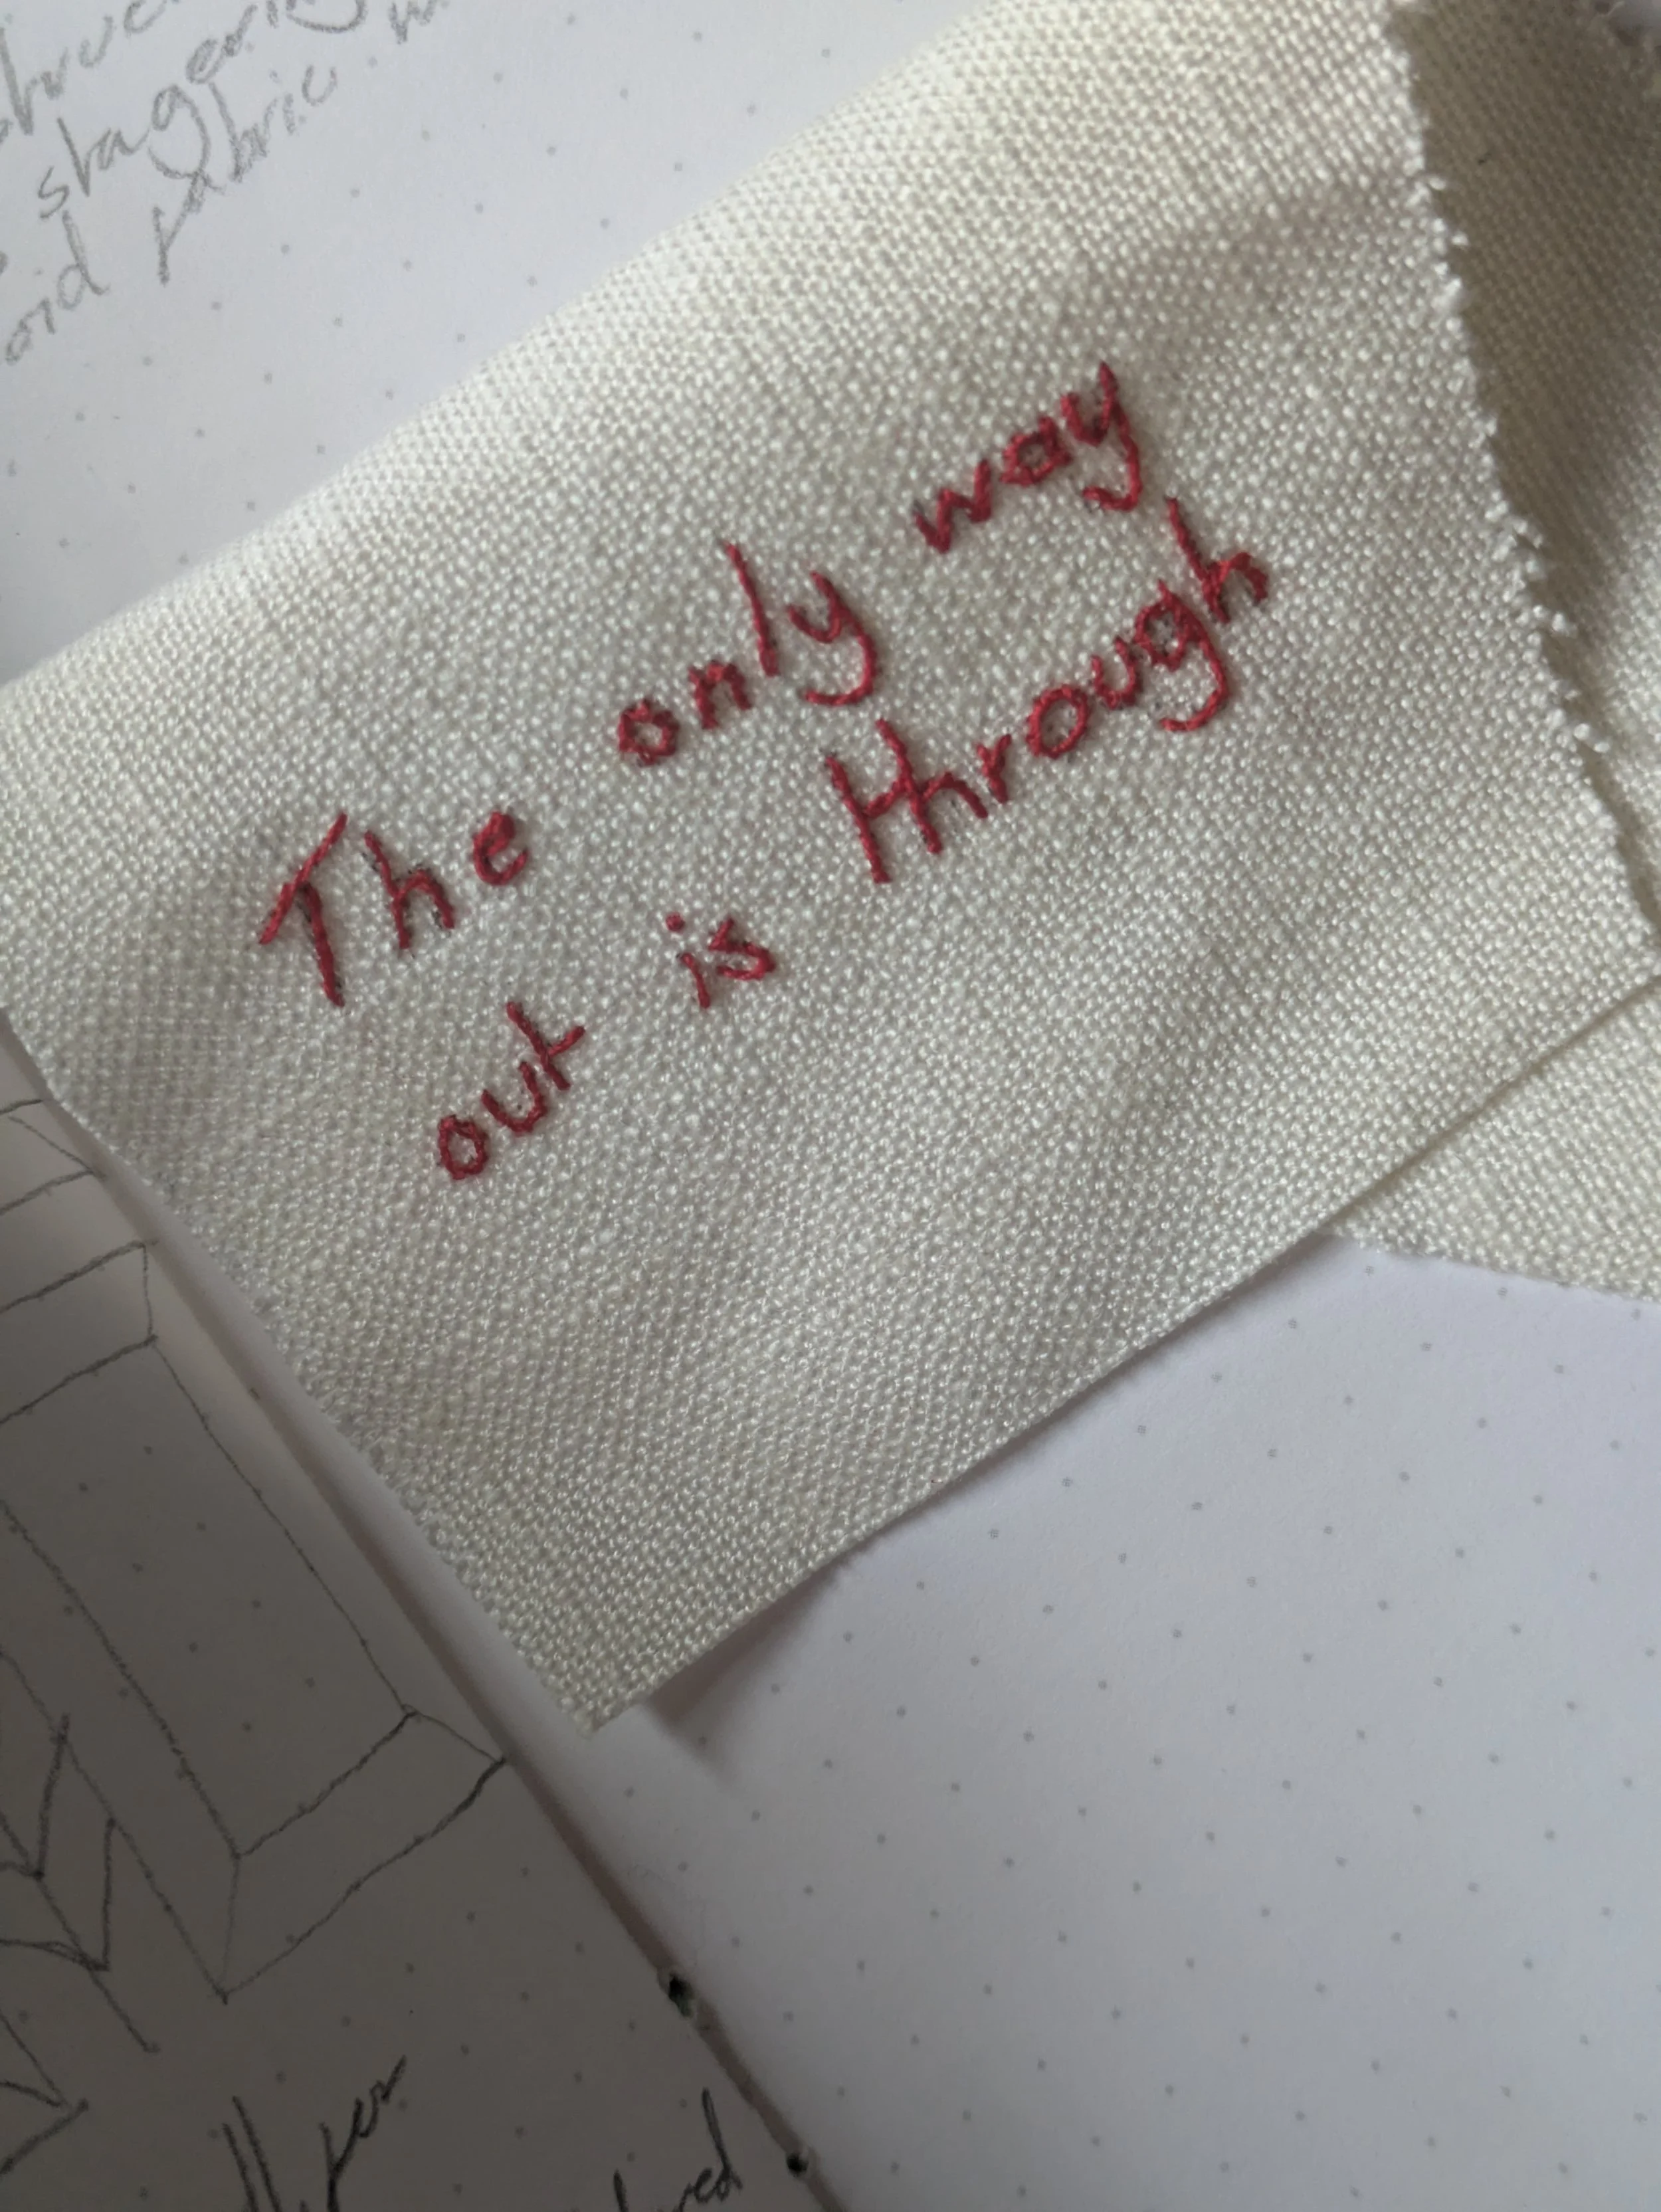 staggering
fabric
The only way
out is through